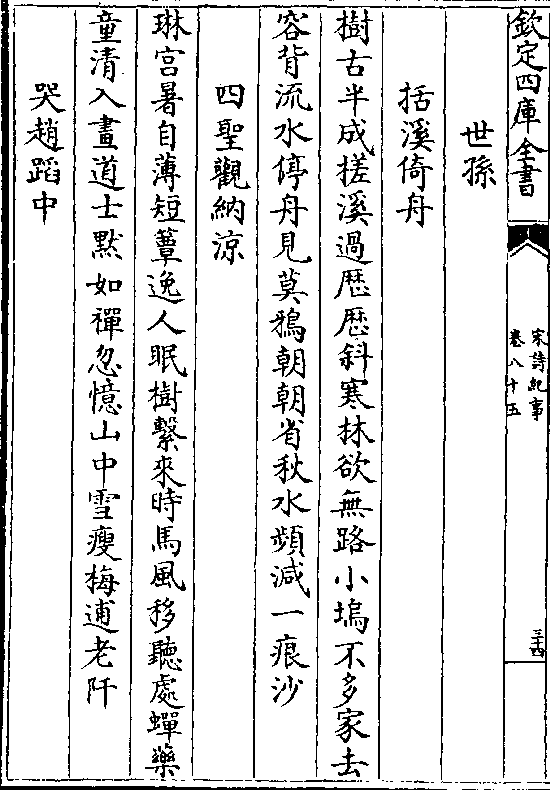 欽定四庫全書
宋詩紀事
卷八十五
三十四
世孫
括溪倚舟
樹古半成槎溪過歴歴斜寒林欲無路小塢不多家去
容背流水停舟見莫鴉朝朝省秋水頻減一痕沙
四聖觀納凉
琳宫暑自薄短簟逸人眠樹繫來時馬風移聽處蟬藥
童清入畫道士黙如禪忽憶山中雪瘦梅逋老阡
哭趙蹈中